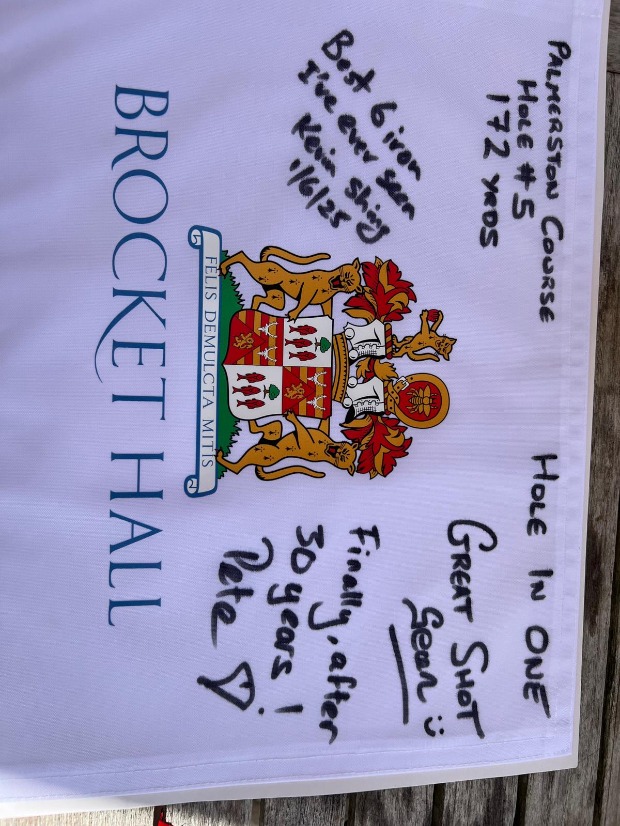 PALMERSTON COURSE
HOLE #5
172 YRDS
HOLE IN ONE
Best 6 iron
I've ever seen
Kevin String
1/6/25
GREAT SHOT
Sean
Finally, after
30 years!
Pete
FELIS DEMULCTA MITIS
BROCKET HALL